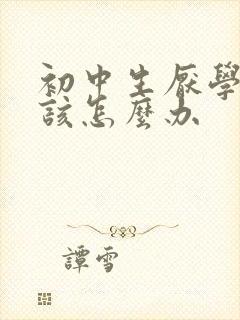 初中生厭學
該怎麼办
譚雪